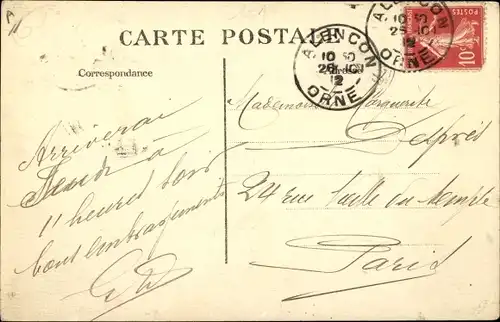 CARTE POSTALE
Correspondance
Adresse
ALENCON
10
25 10
12
ORNE
ALENCON
10
25 10
12
ORNE
POSTES
10
Arriverai
Jeudi à
11 heures soir
bons embrassements
Mademoiselle Marguerite
Després
24 rue Vieille du temple
Paris